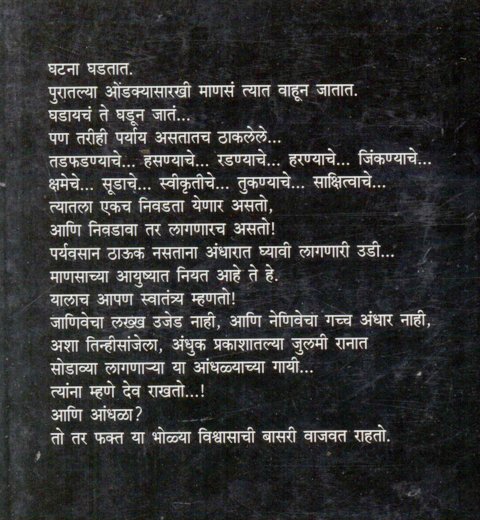 घटना घडतात.
पुरातल्या ओंडक्यासारखी माणसं त्यात वाहून जातात.
घडायचं ते घडून जातं...
पण तरीही पर्याय असतातच ठाकलेले...
तडफडण्याचे... हसण्याचे... रडण्याचे... हरण्याचे... जिंकण्याचे...
क्षमेचे... सूडाचे... स्वीकृतीचे... तुकण्याचे... साक्षित्वाचे...
त्यातला एकच निवडता येणार असतो,
आणि निवडावा तर लागणारच असतो!
पर्यवसान ठाऊक नसताना अंधारात घ्यावी लागणारी उडी...
माणसाच्या आयुष्यात नियत आहे ते हे.
यालाच आपण स्वातंत्र्य म्हणतो!
जाणिवेचा लख्ख उजेड नाही, आणि नेणिवेचा गच्च अंधार नाही,
अशा तिन्हीसांजेला, अंधुक प्रकाशातल्या जुलमी रानात
सोडाव्या लागणाऱ्या या आंधळ्याच्या गायी...
त्यांना म्हणे देव राखतो...!
आणि आंधळा?
तो तर फक्त या भोळ्या विश्वासाची बासरी वाजवत राहतो.